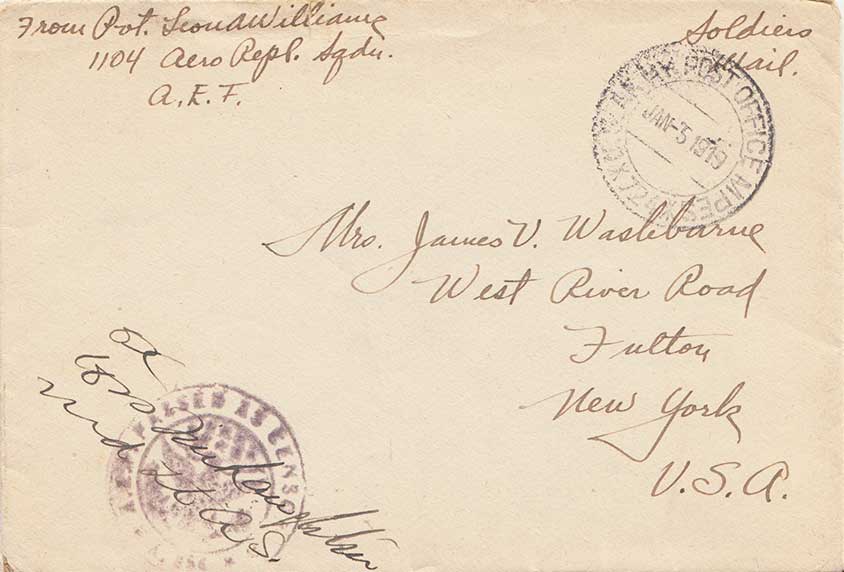 From Pvt. Leon A Williams
1104 Aero Repl. Sqdn.
A.E.F.
Soldiers
Mail.
ARMY POST OFFICE
JAN-3 1919
Mrs. James V. Washburne
West River Road
Fulton
New York
U.S.A.
OK
A.E.F. PASSED AS CENSORED